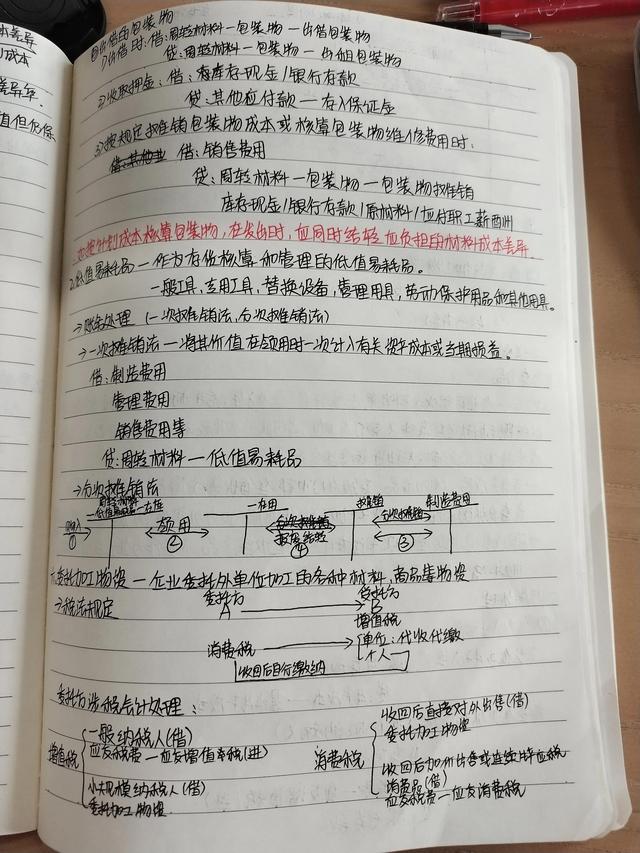 本差异
成本
差异率
值但仍保
包出借的包装物
1)出借时:借:周转材料一包装物一出借包装物
贷:周转材料一包装物一出租包装物
②收取押金:借:库存现金/银行存款
贷:其他应付款一存入保证金
③按规定摊销包装物成本或核算包装物维修费用时:
借:其他业 借:销售费用
贷:周转材料一包装物一包装物摊销
库存现金/银行存款/原材料/应付职工薪酬
如按计划成本核算包装物,在发出时,应同时结转应负担的材料成本差异
2.低值易耗品一作为存货核算和管理的低值易耗品。
一般工具,专用工具,替换设备,管理用具,劳动保护用品和其他用具。
→账务处理(一次摊销法,分次摊销法)
→一次摊销法一将其价值在领用时一次计入有关资产成本或当期损益。
借:制造费用
管理费用
销售费用等
贷:周转材料一低值易耗品
→分次摊销法
周转材料
低值易耗品一在库 一在用 一摊销 制造费用
购入 领用 分次摊销 分次摊销
① ② 报废结转 ④ ③
六.委托加工物资一企业委托外单位加工的各种材料,商品等物资
→税法规定 委托方 受托方
A B
增值税
消费税 单位:代收代缴
个人
收回后自行缴纳
委托方涉税会计处理:
增值税
一般纳税人(借)
应交税费一应交增值税(进)
小规模纳税人(借)
委托加工物资
消费税
收回后直接对外出售(借)
委托加工物资
收回后加价出售或连续生产应税
消费品(借)
应交税费一应交消费税